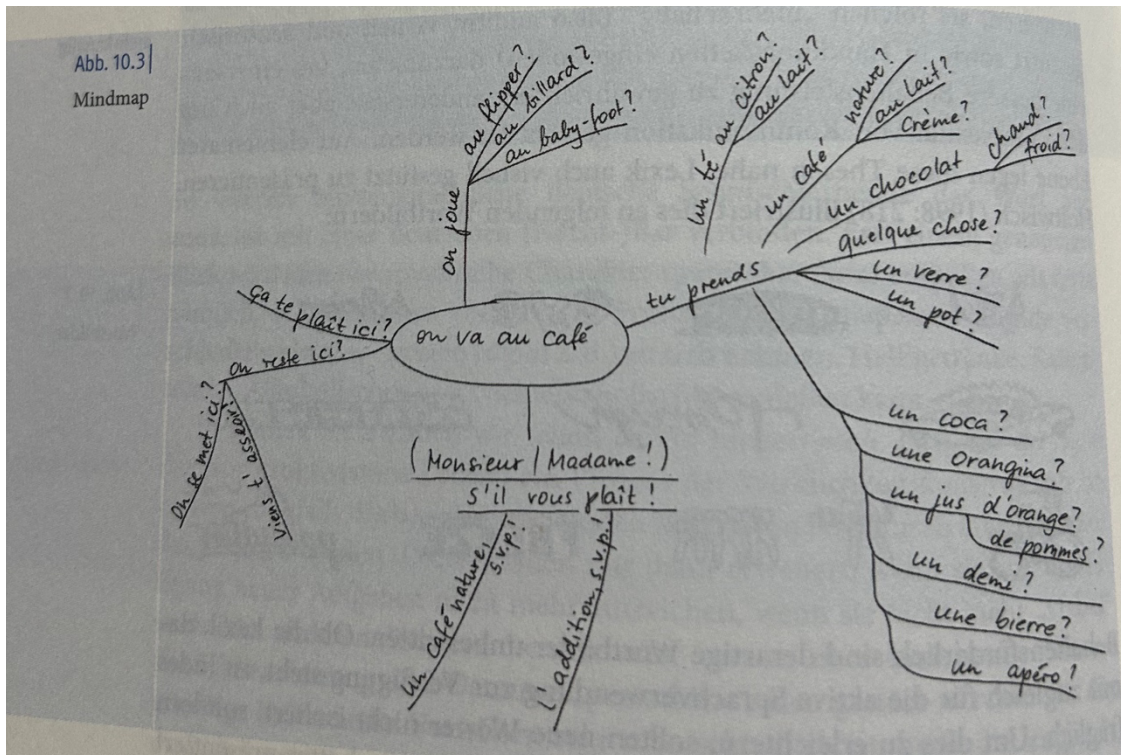 Abb. 10.3
Mindmap
on va au café
on joue
au flipper?
au billard?
au baby-foot?
tu prends
un té
au citron?
au lait?
un café
nature?
au lait?
crème?
un chocolat
chaud?
froid?
quelque chose?
un verre?
un pot?
un coca?
une Orangina?
un jus d'orange?
de pommes?
un demi?
une bierre?
un apéro?
(Monsieur / Madame!)
s'il vous plaît!
un café nature, s.v.p.!
L'addition, s.v.p.!
Ça te plaît ici?
On reste ici?
On se met ici?
Viens t'asseoir!